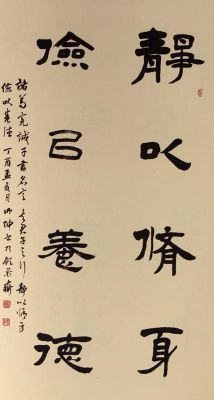 靜以脩身
儉以養德
諸葛亮誡子書名言夫君子之行靜以脩身
儉以養德丁酉孟夏月坤書於齋